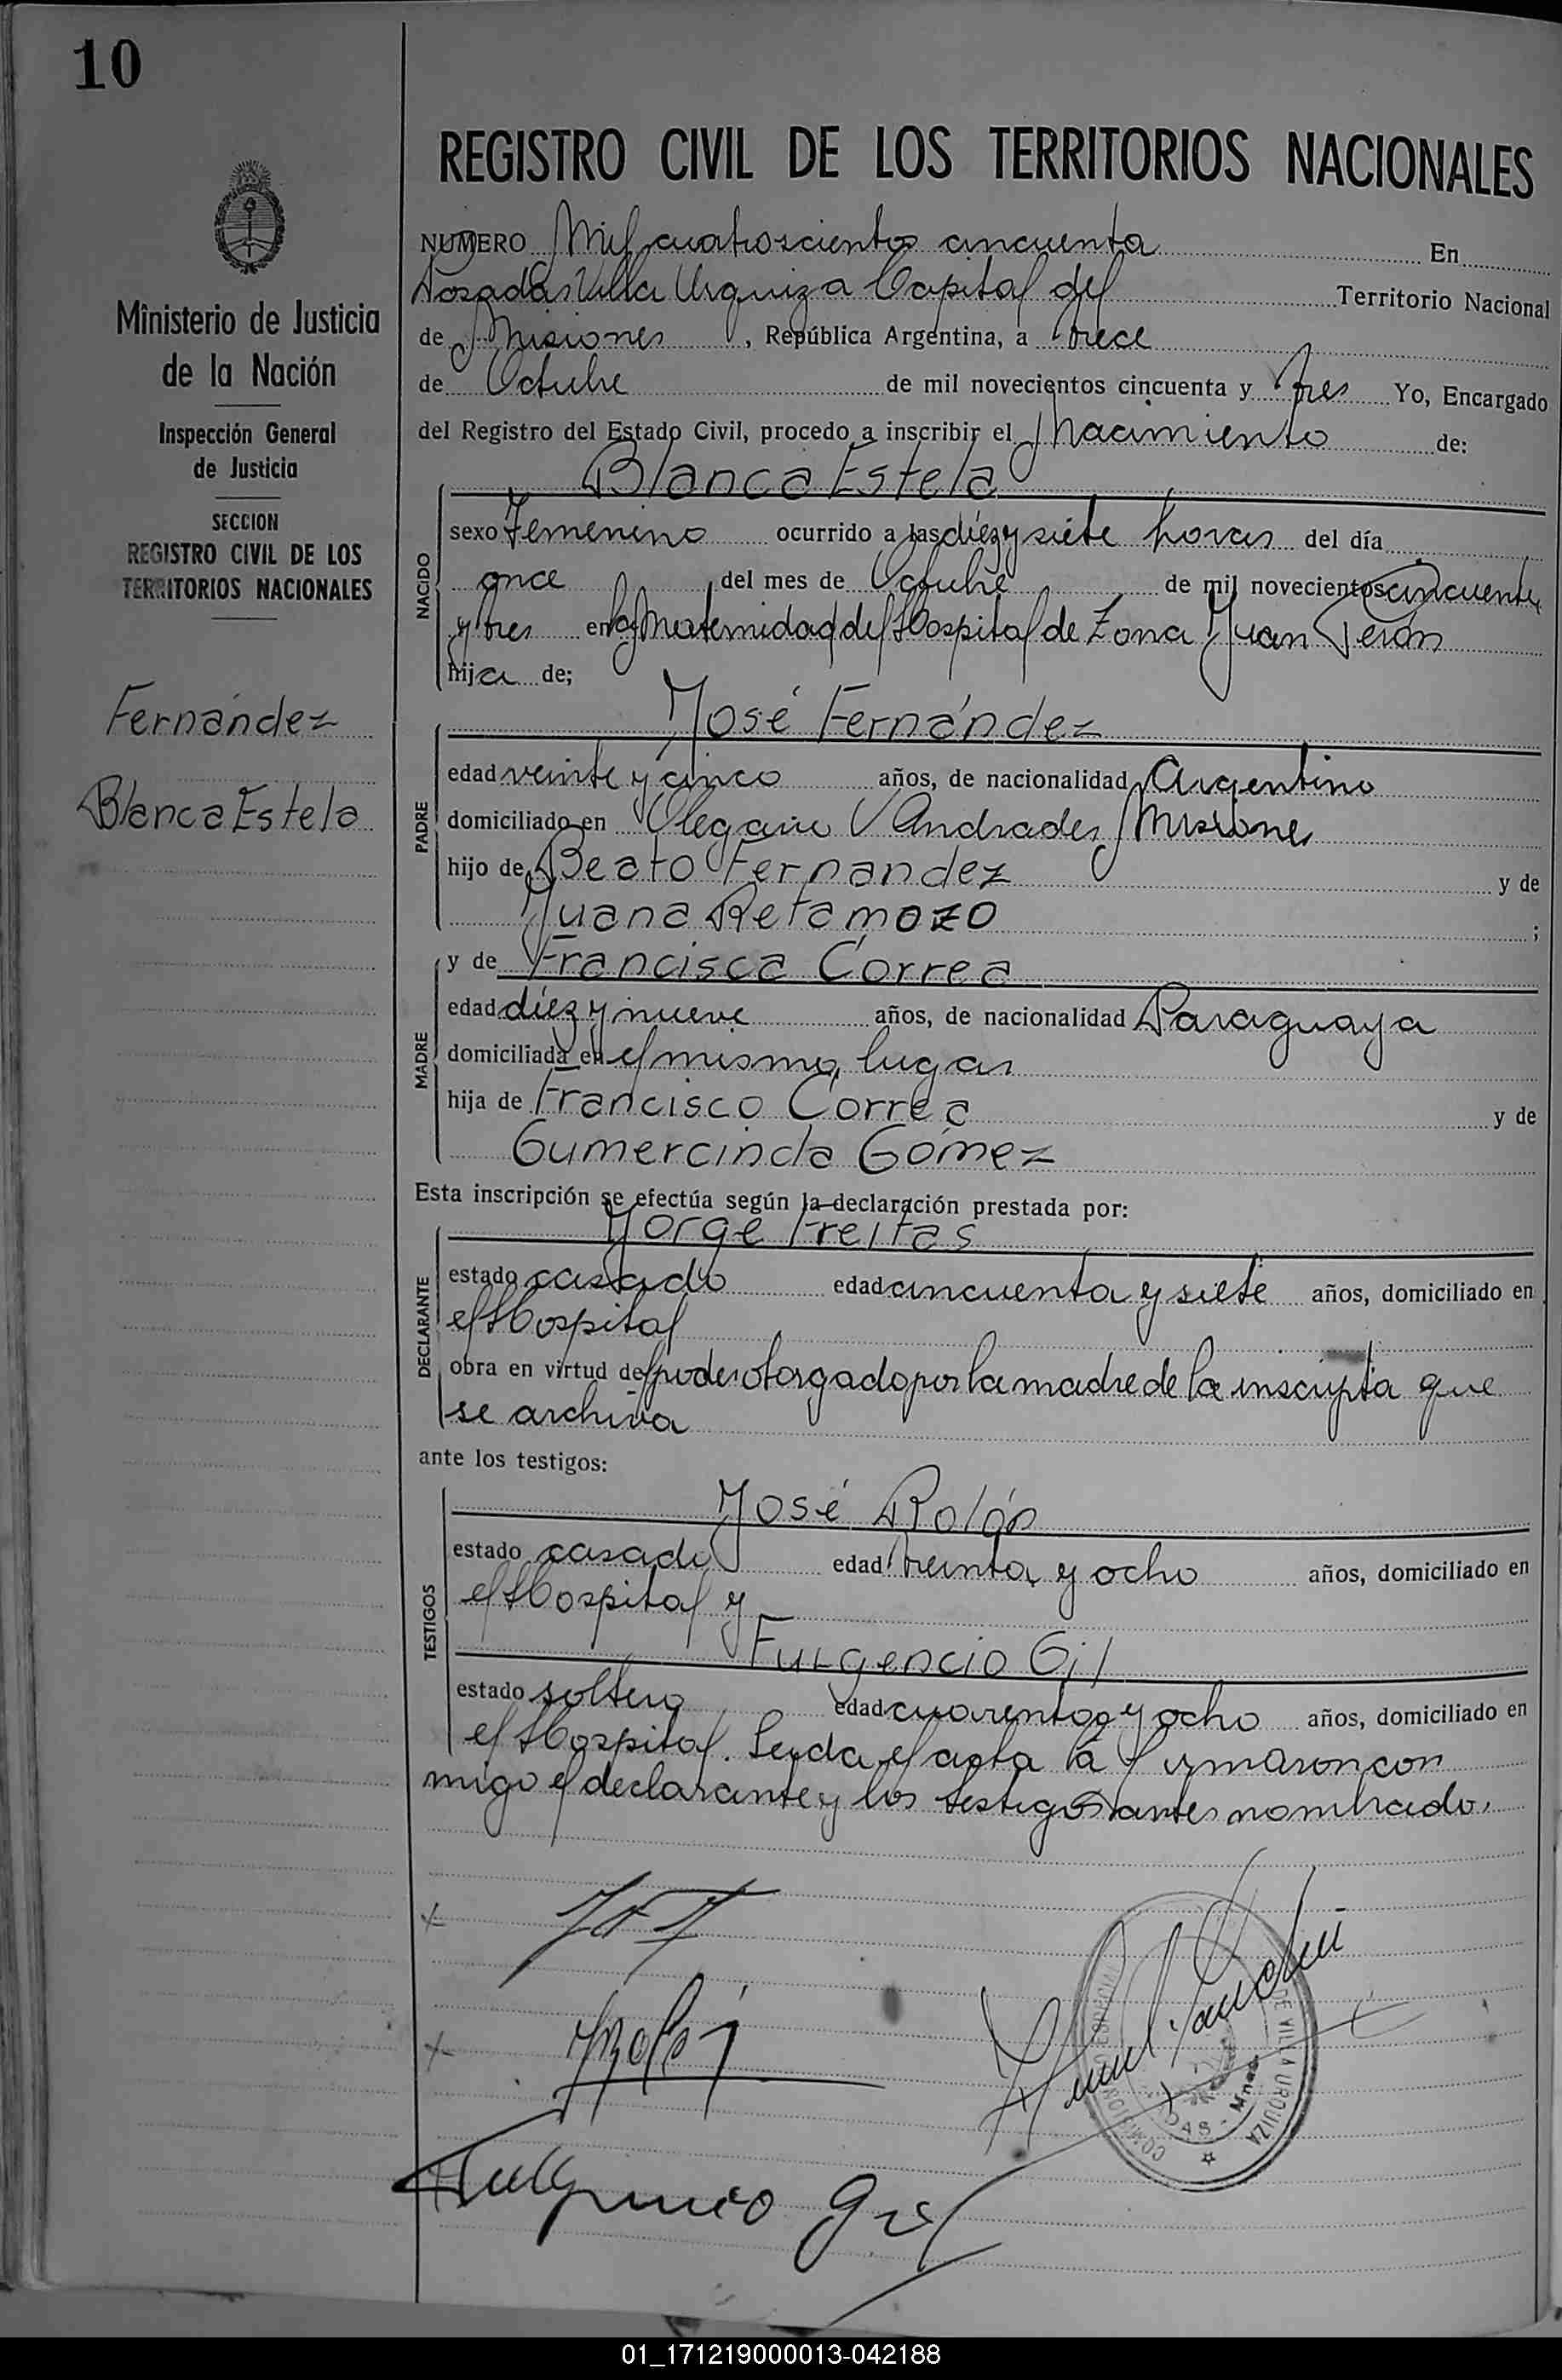 10
REGISTRO CIVIL DE LOS TERRITORIOS NACIONALES
Ministerio de Justicia
de la Nación
Inspección General
de Justicia
SECCION
REGISTRO CIVIL DE LOS
TERRITORIOS NACIONALES
Fernández
Blanca Estela
NUMERO Mil cuatroscientos cincuenta En
Posadas Villa Urquiza Capital del Territorio Nacional
de Misiones, República Argentina, a trece
de Octubre de mil novecientos cincuenta y tres Yo, Encargado
del Registro del Estado Civil, procedo a inscribir el Nacimiento de:
Blanca Estela
NACIDO
sexo Femenino ocurrido a las diez y siete horas del día
once del mes de Octubre de mil novecientos cincuenta
y tres en la Maternidad del Hospital de Zona Juan Perón
hija de;
José Fernández
PADRE
edad veinte y cinco años, de nacionalidad Argentino
domiciliado en Olegario V Andrades Misiones
hijo de Beato Fernandez y de
Juana Retamozo ;
MADRE
y de Francisca Correa
edad diez y nueve años, de nacionalidad Paraguaya
domiciliada en el mismo lugar
hija de Francisco Correa y de
Gumercinda Gómez
Esta inscripción se efectúa según la declaración prestada por:
Jorge Freitas
DECLARANTE
estado casado edad cincuenta y siete años, domiciliado en
el Hospital
obra en virtud del poder otorgado por la madre de la inscripta que
se archiva
ante los testigos:
José Rolón
TESTIGOS
estado casado edad treinta y ocho años, domiciliado en
el Hospital y
Fulgencio Gil
estado soltero edad cuarenta y ocho años, domiciliado en
el Hospital. Leida el acta la firmaron con
migo el declarante y los testigos antes nombrado.
JRolón
COMISION ESPECIAL DE VILLA URQUIZA
DAS - Mnes
Fulgencio Gil
01_171219000013-042188